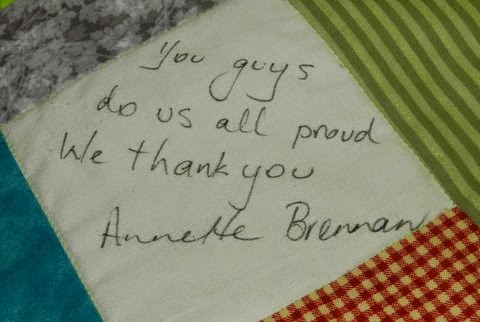 You guys
do us all proud
We thank you
Annette Brennan